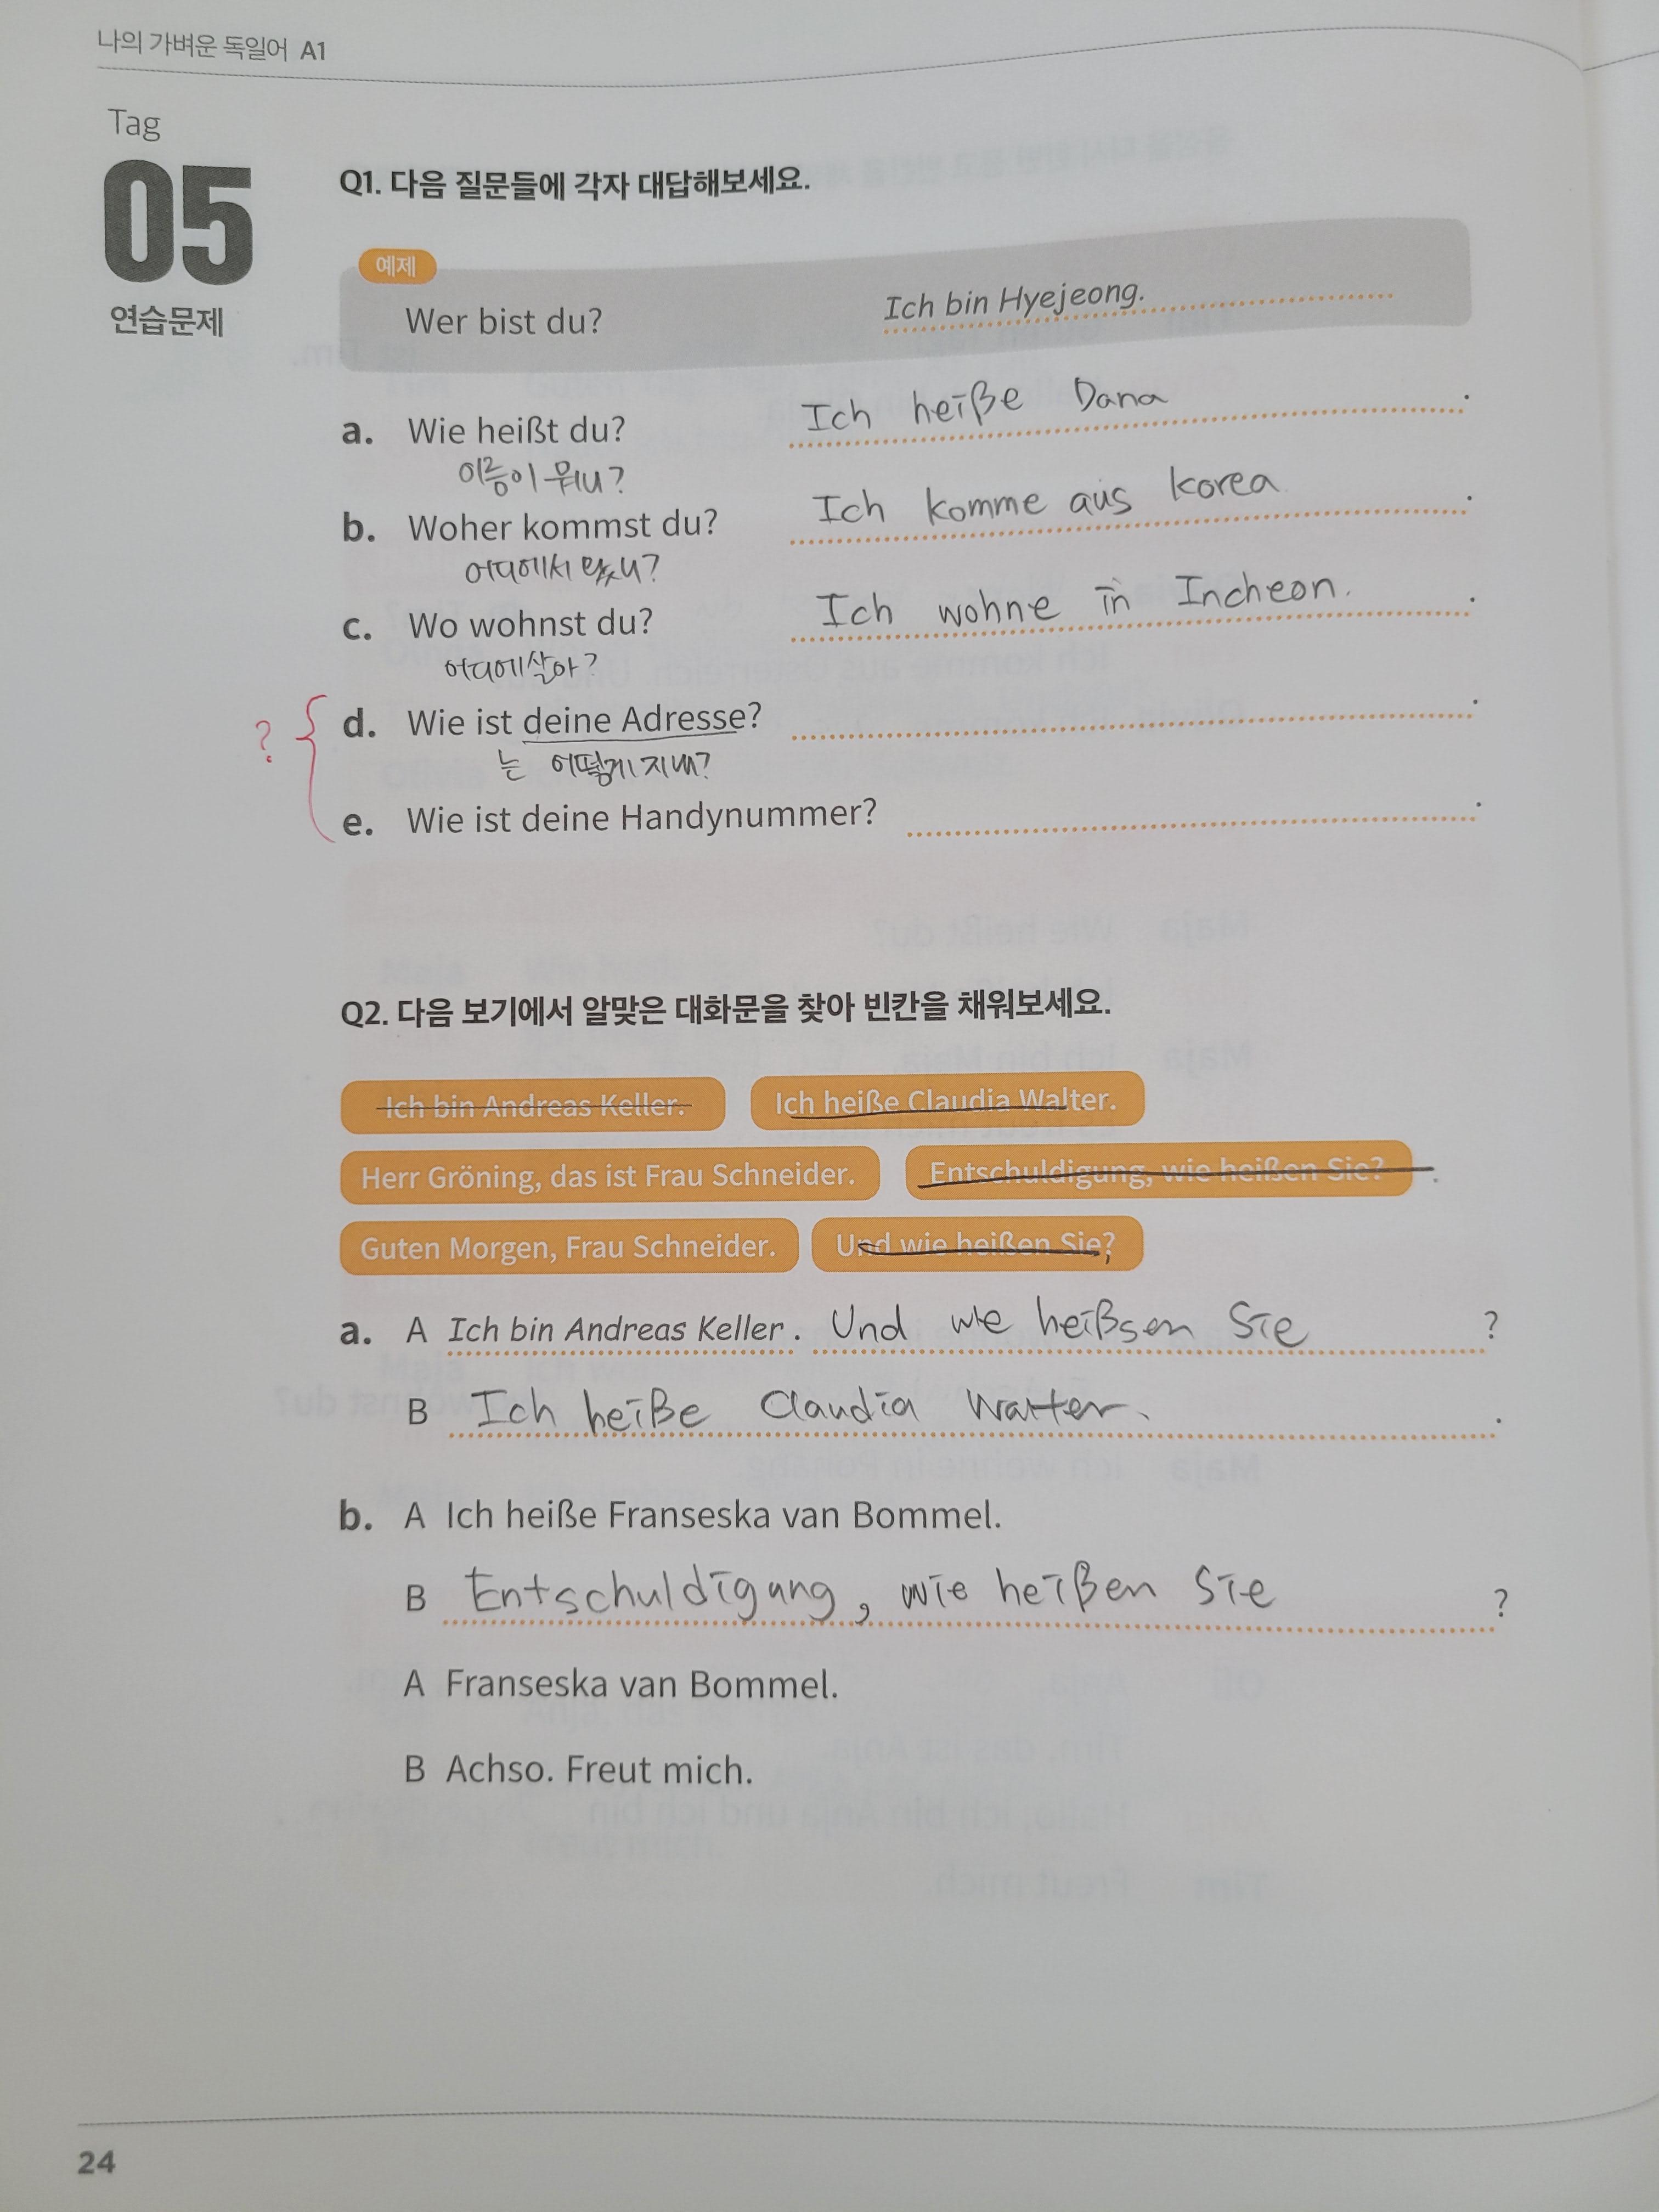 나의 가벼운 독일어 A1
Tag
05
연습문제
Q1. 다음 질문들에 각자 대답해보세요.
예제
Wer bist du? Ich bin Hyejeong.
a. Wie heißt du? Ich heiße Dana .
이름이 뭐니?
b. Woher kommst du? Ich komme aus Korea .
어디에서 왔니?
c. Wo wohnst du? Ich wohne in Incheon. .
어디에 살아?
? d. Wie ist deine Adresse? .
는 어떻게 지내?
e. Wie ist deine Handynummer? .
Q2. 다음 보기에서 알맞은 대화문을 찾아 빈칸을 채워보세요.
Ich bin Andreas Keller. Ich heiße Claudia Walter.
Herr Gröning, das ist Frau Schneider. Entschuldigung, wie heißen Sie?
Guten Morgen, Frau Schneider. Und wie heißen Sie?
a. A Ich bin Andreas Keller. Und wie heißsen Sie ?
B Ich heiße Claudia Walter. .
b. A Ich heiße Franseska van Bommel.
B Entschuldigung, wie heißen Sie ?
A Franseska van Bommel.
B Achso. Freut mich.
24